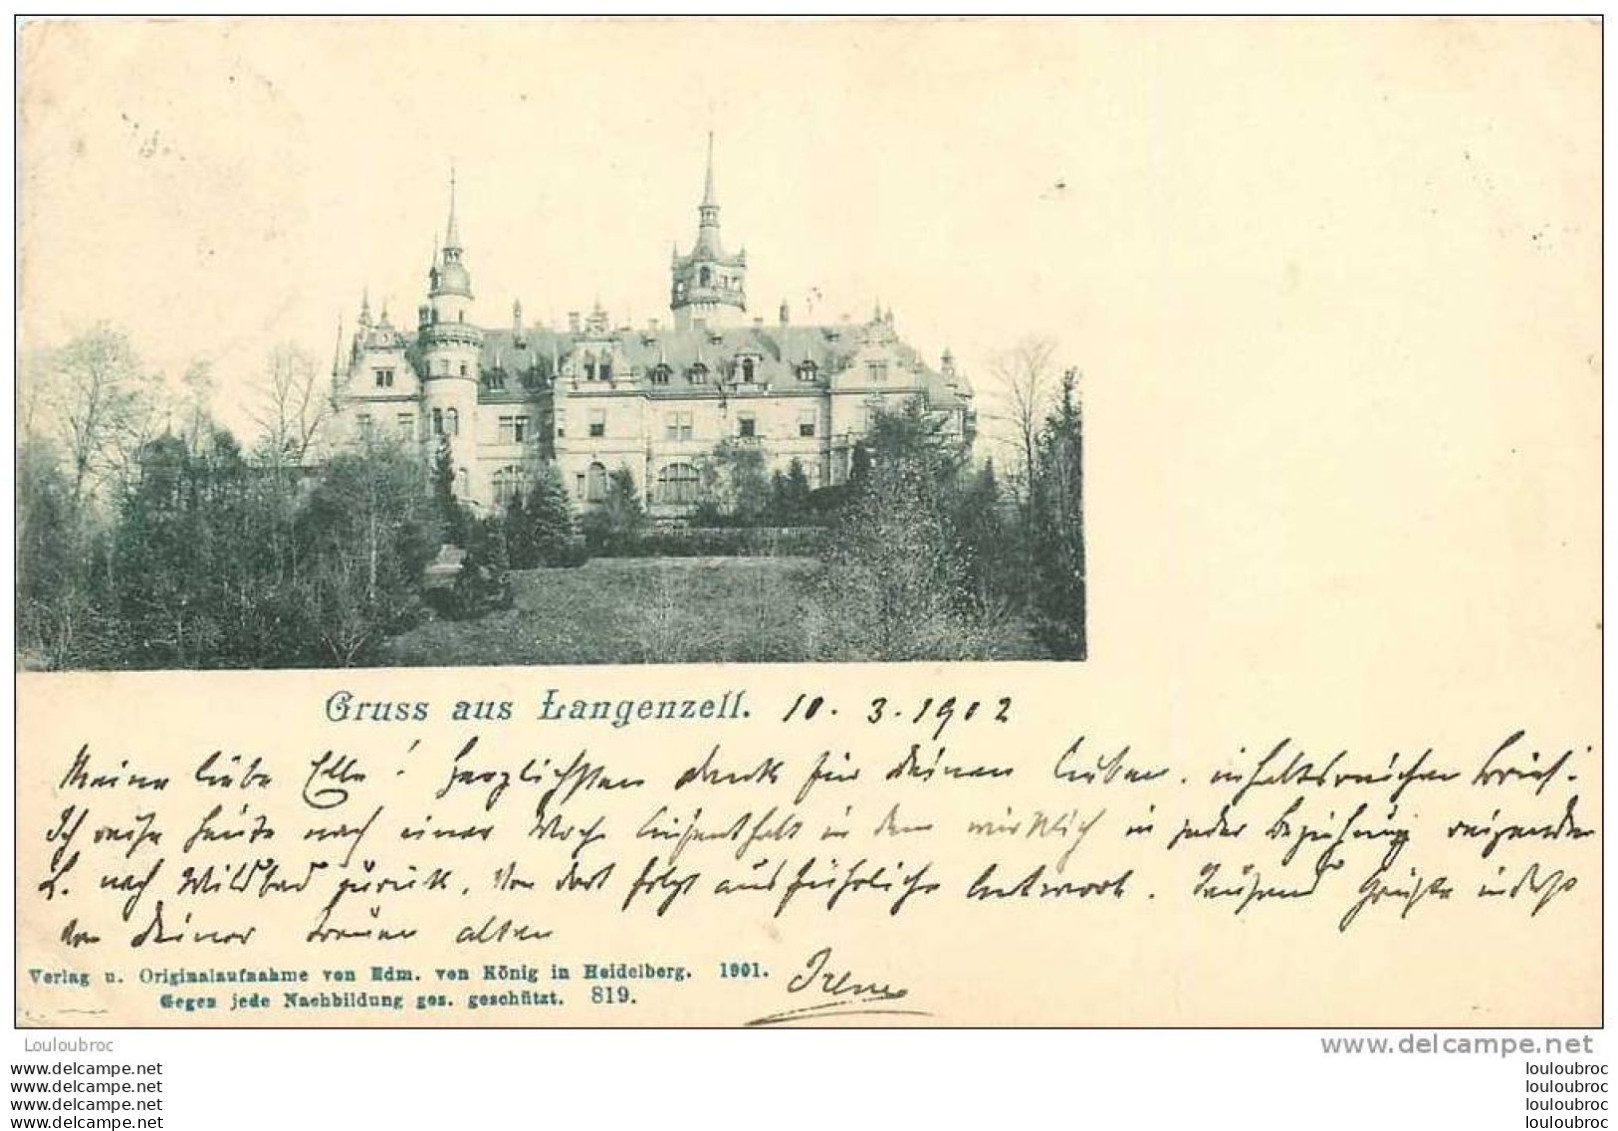 Gruss aus Langenzell. 10. 3. 1902
Meine liebe Ella! Herzlichsten Dank für Deinen lieben, inhaltsreichen Brief.
Ich reise heute nach einer Woche Aufenthalt in dem wirklich in jeder Beziehung reizenden
L. nach Wildbad zurück. Von dort folgt ausführliche Antwort. Tausend Grüße indeß
von Deiner treuen alten
Irene
Verlag u. Originalaufnahme von Edm. von König in Heidelberg. 1901.
Gegen jede Nachbildung ges. geschützt. 819.
Louloubroc
www.delcampe.net
www.delcampe.net
www.delcampe.net
www.delcampe.net
www.delcampe.net
louloubroc
louloubroc
louloubroc
louloubroc